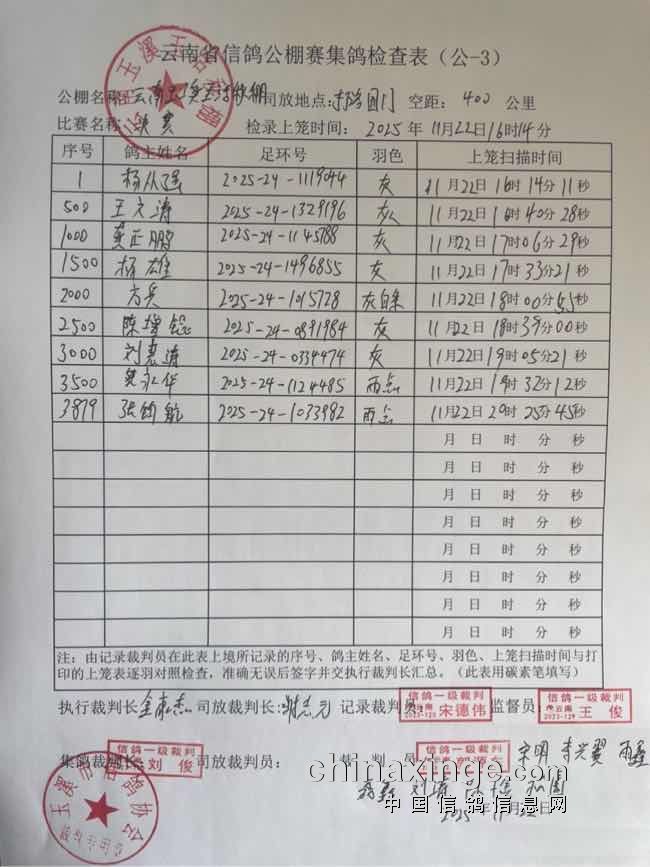 云南省信鸽公棚赛集鸽检查表（公-3）
公棚名称: 云南 司放地点: 空距: 400 公里
比赛名称: 决赛 检录上笼时间: 2025年 11月22日16时14分
序号 鸽主姓名 足环号 羽色 上笼扫描时间
1 杨从强 2025-24-1119044 灰 11月22日16时14分11秒
500 王文涛 2025-24-1329196 灰 11月22日16时40分28秒
1000 龚正鹏 2025-24-1145788 灰 11月22日17时06分29秒
1500 杨雄 2025-24-1496855 灰 11月22日17时33分21秒
2000 方兵 2025-24-1015728 灰白条 11月22日18时00分55秒
2500 陈 2025-24-0891984 灰 11月22日18时39分00秒
3000 刘惠涛 2025-24-0334474 灰 11月22日19时05分21秒
3500 永华 2025-24-1124485 雨点 11月22日19时32分12秒
3879 张 航 2025-24-1033982 雨点 11月22日20时25分45秒
月 日 时 分 秒
月 日 时 分 秒
月 日 时 分 秒
月 日 时 分 秒
月 日 时 分 秒
月 日 时 分 秒
月 日 时 分 秒
月 日 时 分 秒
注：由记录裁判员在此表上境所记录的序号、鸽主姓名、足环号、羽色、上笼扫描时间与打
印的上笼表逐羽对照检查，准确无误后签字并交执行裁判长汇总。（此表用碳素笔填写）
执行裁判长: 司放裁判长: 记录裁判员: 信鸽一级裁判 宋德伟 监督员: 信鸽一级裁判 2023-129 王俊
集鸽裁判长: 信鸽一级裁判 刘俊 司放裁判员: 裁判员: 信鸽一级裁判 宋明
chinaxinge.com
中国信鸽信息网
2025年11月22日
玉溪市信鸽协会